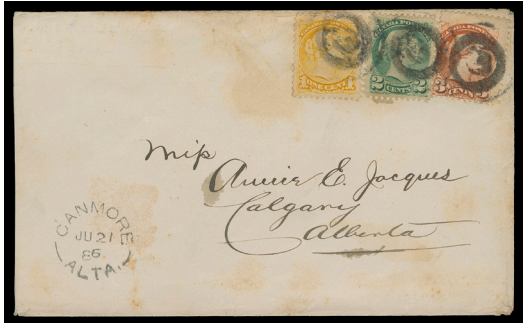 CANADA POSTAGE
ONE CENT
2 CENTS 2
3 CENTS 3
Miss
Annie E. Jacques
Calgary
Alberta
CANMORE
JU 21
86
ALTA.